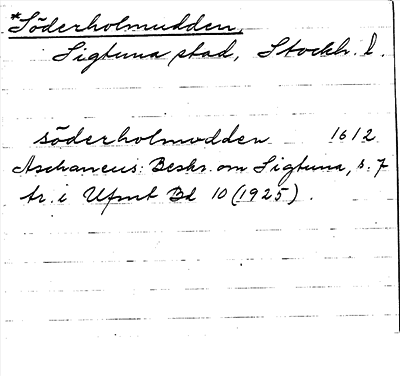 *Söderholmudden,
Sigtuna stad, Stockh. l.
söderholmodden 1612
Aschaneus: Beskr. om Sigtuna, s. 7
tr. i Ufmt Bd 10 (1925).